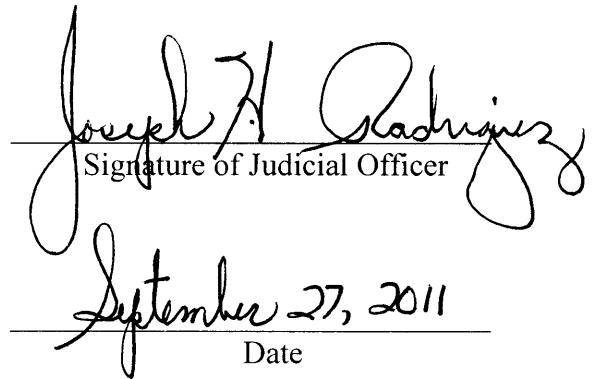 Joseph H Rodriguez
Signature of Judicial Officer
September 27, 2011
Date